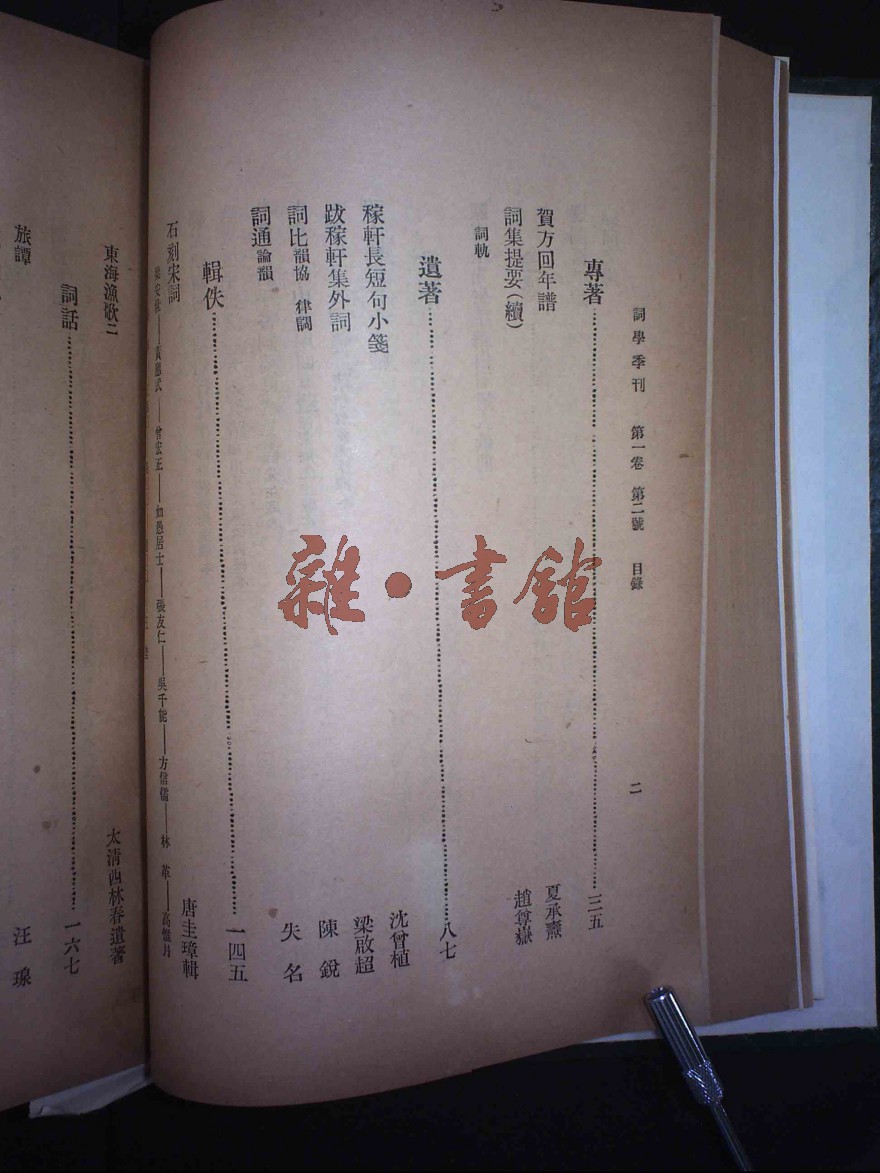 詞學季刊 第一卷 第二號 目錄 二
專著 三五
賀方回年譜 夏承燾
詞集提要(續) 趙尊嶽
詞軌
遺著 八七
稼軒長短句小箋 沈曾植
跋稼軒集外詞 梁啟超
詞比 韻協 律調 陳銳
詞通 論韻 失名
輯佚 一四五
石刻宋詞 唐圭璋輯
梁安世——黃應武——曾宏正——如愚居士——張友仁——吳千能——方信孺——林革——高惟月
東海漁歌二 太清西林春遺著
詞話 一六七
旅譚 汪瑔
雜·書館